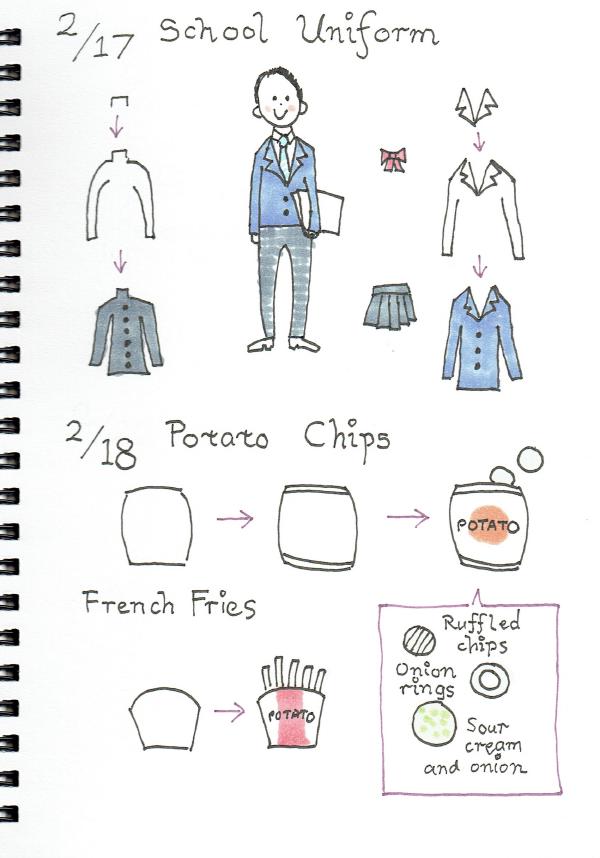 2/17 School Uniform
2/18 Potato Chips
POTATO
French Fries
POTATO
Ruffled
chips
Onion
rings
Sour
cream
and onion